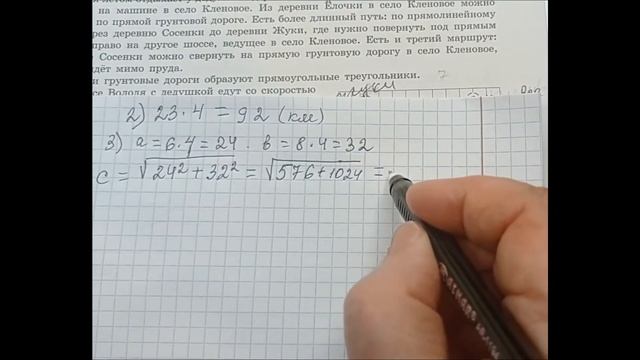 на машине в село Кленовое. Из деревни Ёлочки в село Кленовое можно
по прямой грунтовой дороге. Есть более длинный путь: по прямолинейному
рез деревню Сосенки до деревни Жуки, где нужно повернуть под прямым
право на другое шоссе, ведущее в село Кленовое. Есть и третий маршрут:
Сосенки можно свернуть на прямую грунтовую дорогу в село Кленовое,
дёт мимо пруда.
и грунтовые дороги образуют прямоугольные треугольники.
се Володя с дедушкой едут со скоростью
2) 23·4 = 92 (км)
3) a = 6·4 = 24. b = 8·4 = 32
c = √24² + 32² = √576 + 1024 =